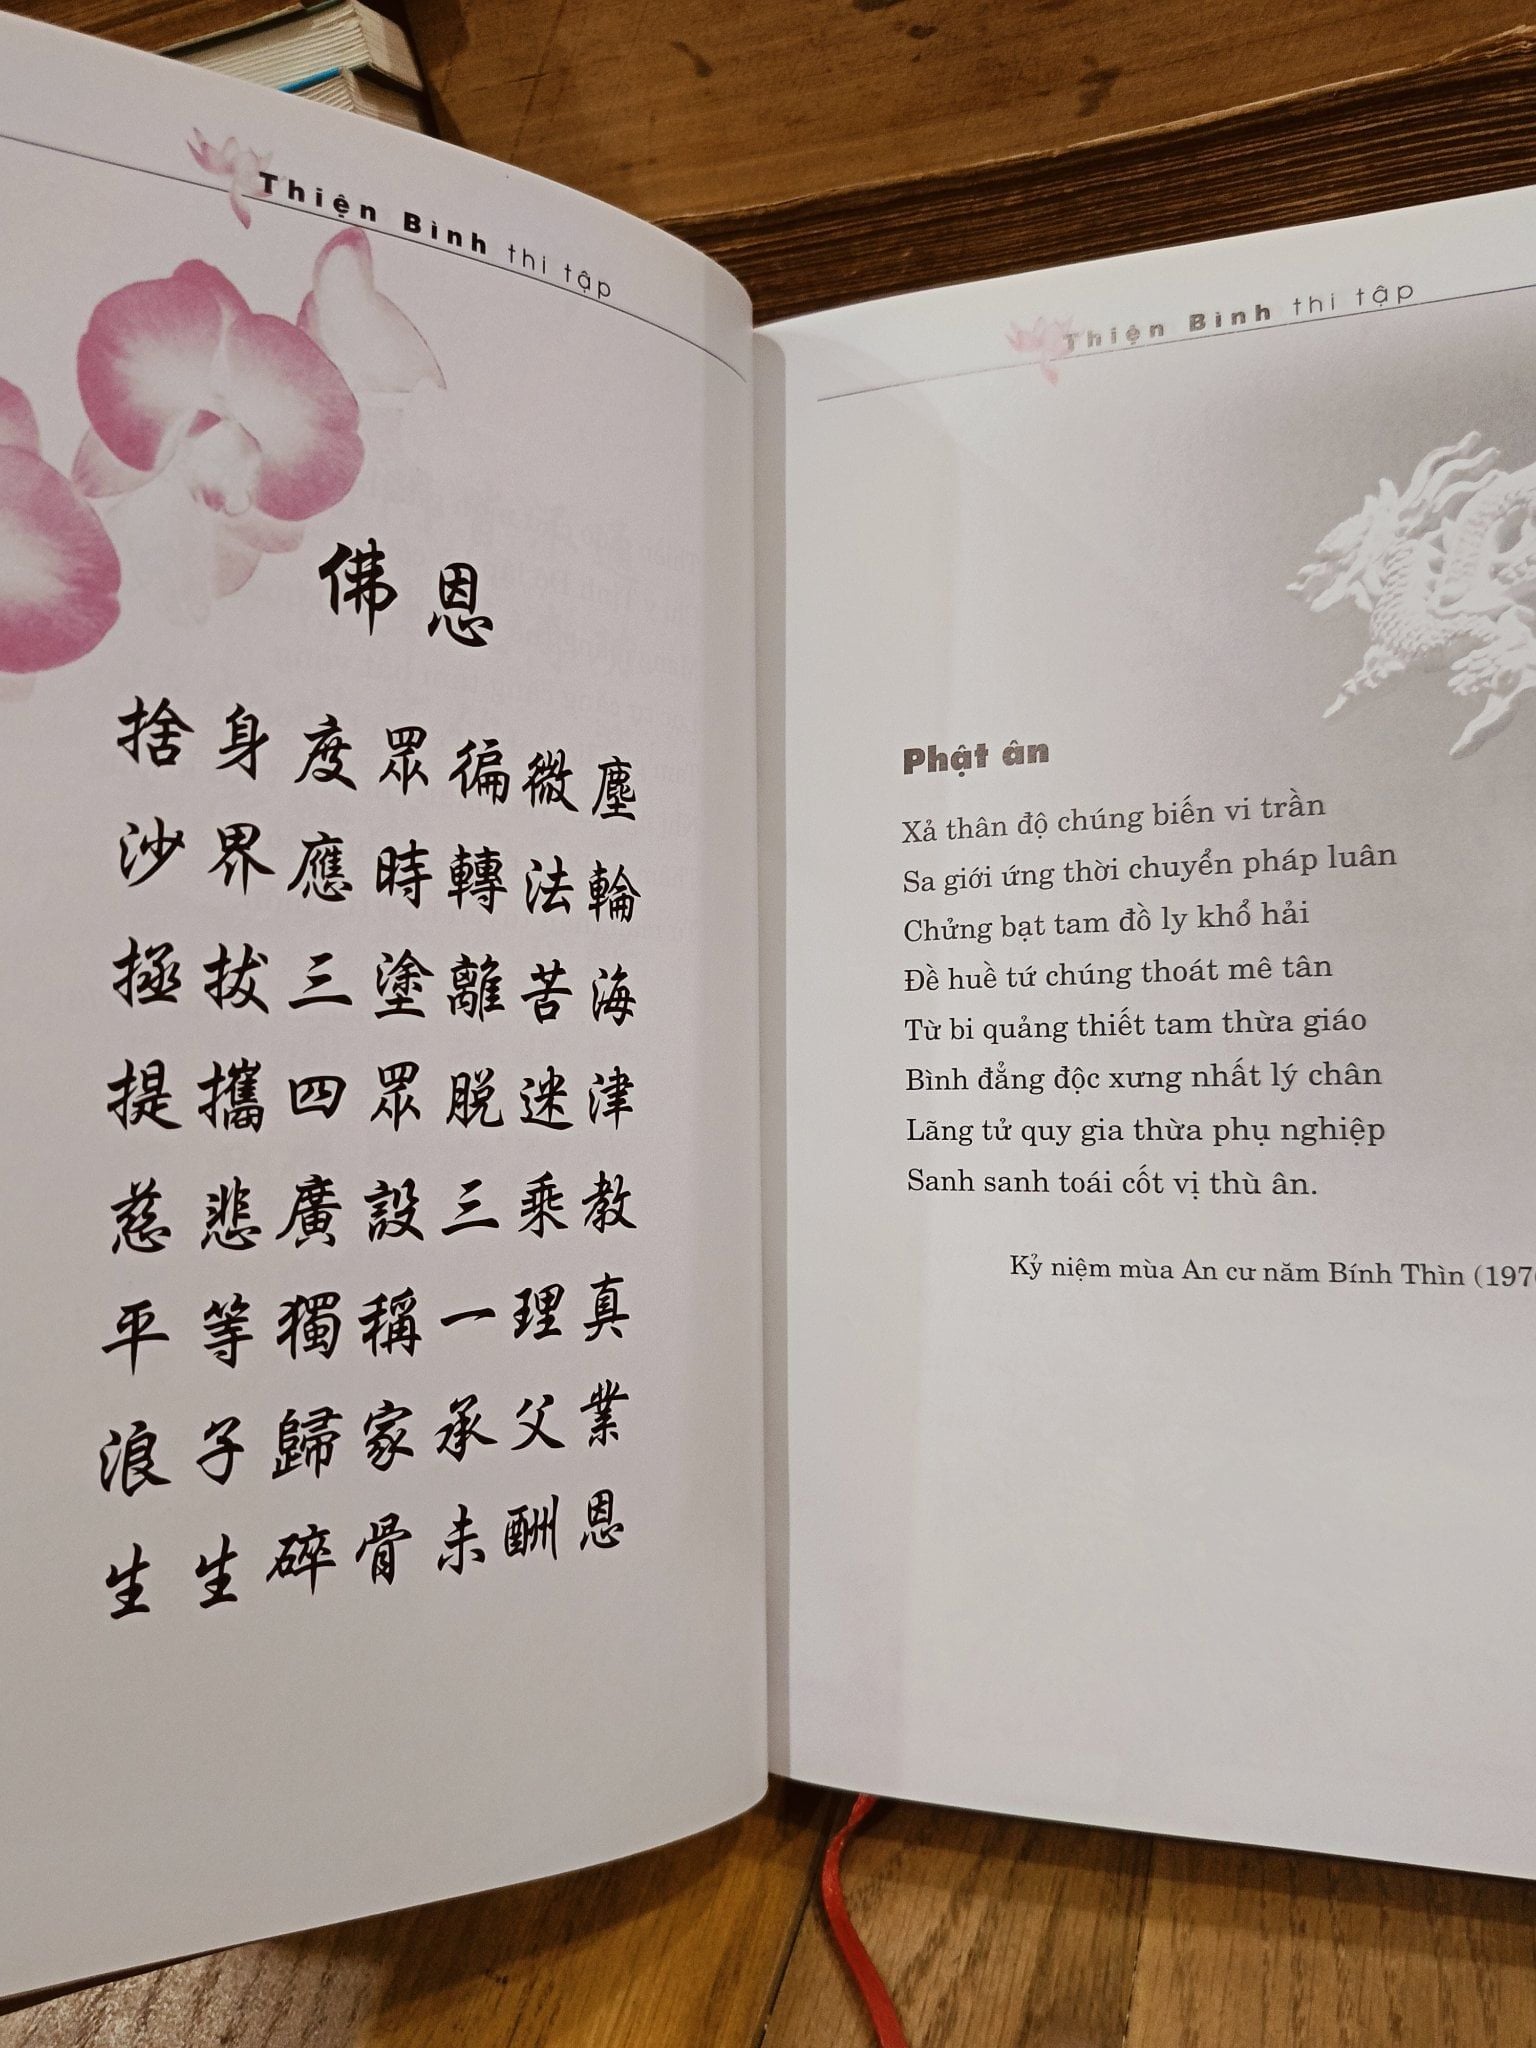 Thiện Bình thi tập
佛恩
捨身度眾徧微塵
沙界應時轉法輪
拯拔三塗離苦海
提攜四眾脱迷津
慈悲廣設三乘教
平等獨稱一理真
浪子歸家承父業
生生碎骨未酬恩
Thiện Bình thi tập
Phật ân
Xả thân độ chúng biến vi trần
Sa giới ứng thời chuyển pháp luân
Chửng bạt tam đồ ly khổ hải
Đề huề tứ chúng thoát mê tân
Từ bi quảng thiết tam thừa giáo
Bình đẳng độc xưng nhất lý chân
Lãng tử quy gia thừa phụ nghiệp
Sanh sanh toái cốt vị thù ân.
Kỷ niệm mùa An cư năm Bính Thìn (197